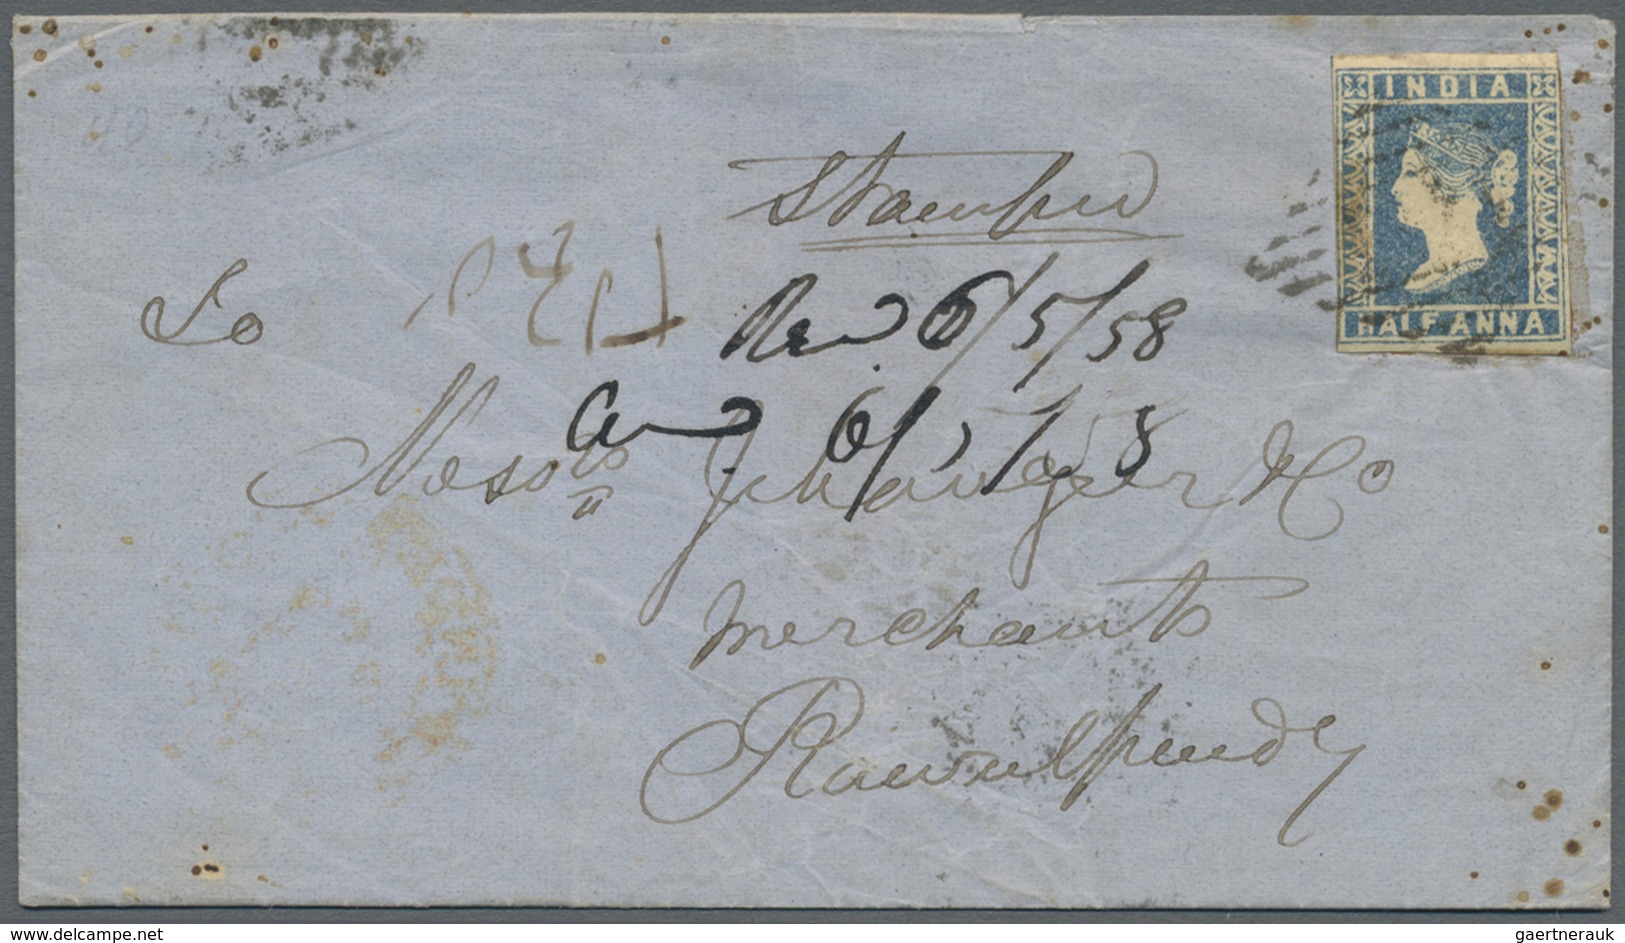 INDIA
HALF ANNA
Stamped
To
Rec 6/5/58
Ans 6/5/58
Messrs Jehangeer & Co
Merchants
Rawulpindy
www.delcampe.net
gaertnerauk